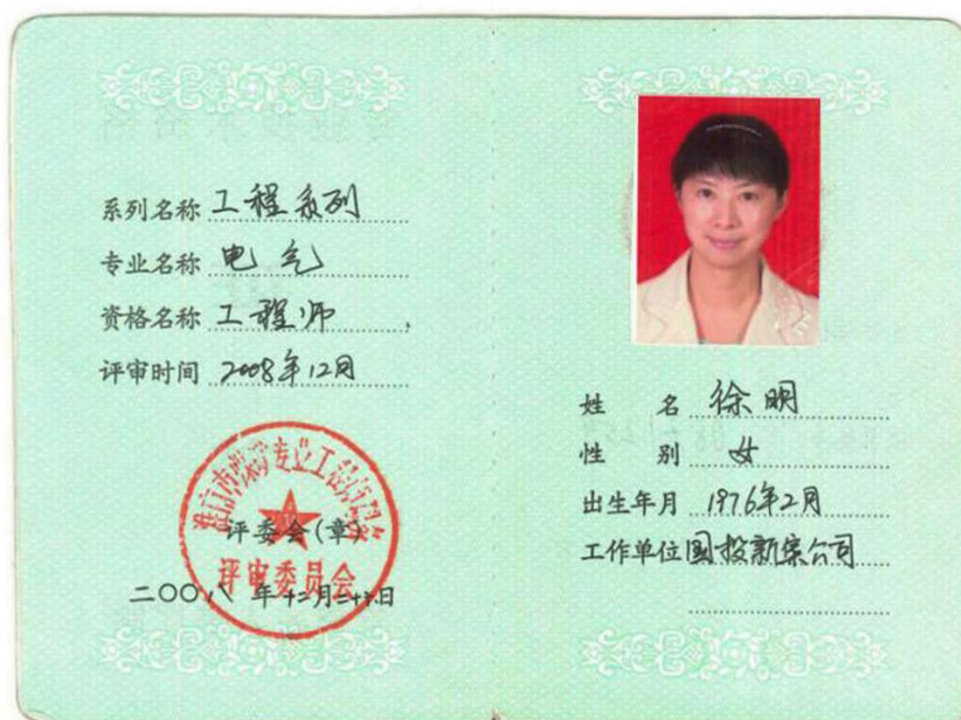 系列名称 工程系列
专业名称 电气
资格名称 工程师
评审时间 2008年12月
评委会(章)
评审委员会
二〇〇八年十二月二十六日
姓名 徐明
性别 女
出生年月 1976年2月
工作单位 国投新集公司